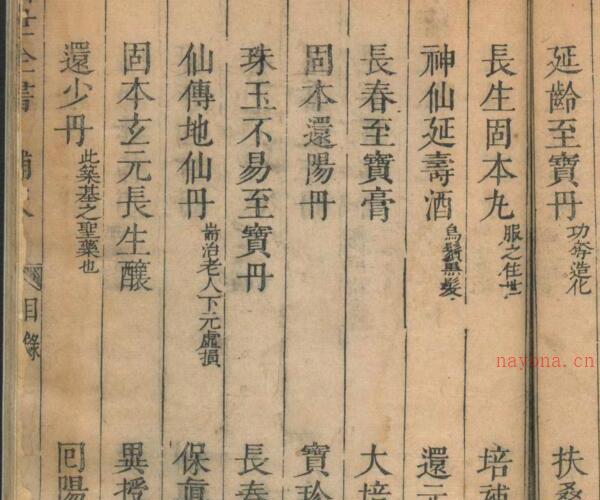 延齡至寶丹 功奪造化
扶桑
長生固本丸 服之住世
培補
神仙延壽酒 烏鬚黑髮
還元
長春至寶膏
大培
固本還陽丹
寶珍
珠玉不易至寶丹
長春
仙傳地仙丹 耑治老人下元虛損
保真
固本玄元長生釀
異授
還少丹 此築基之聖藥也
回陽
全書
目錄
nayona.cn